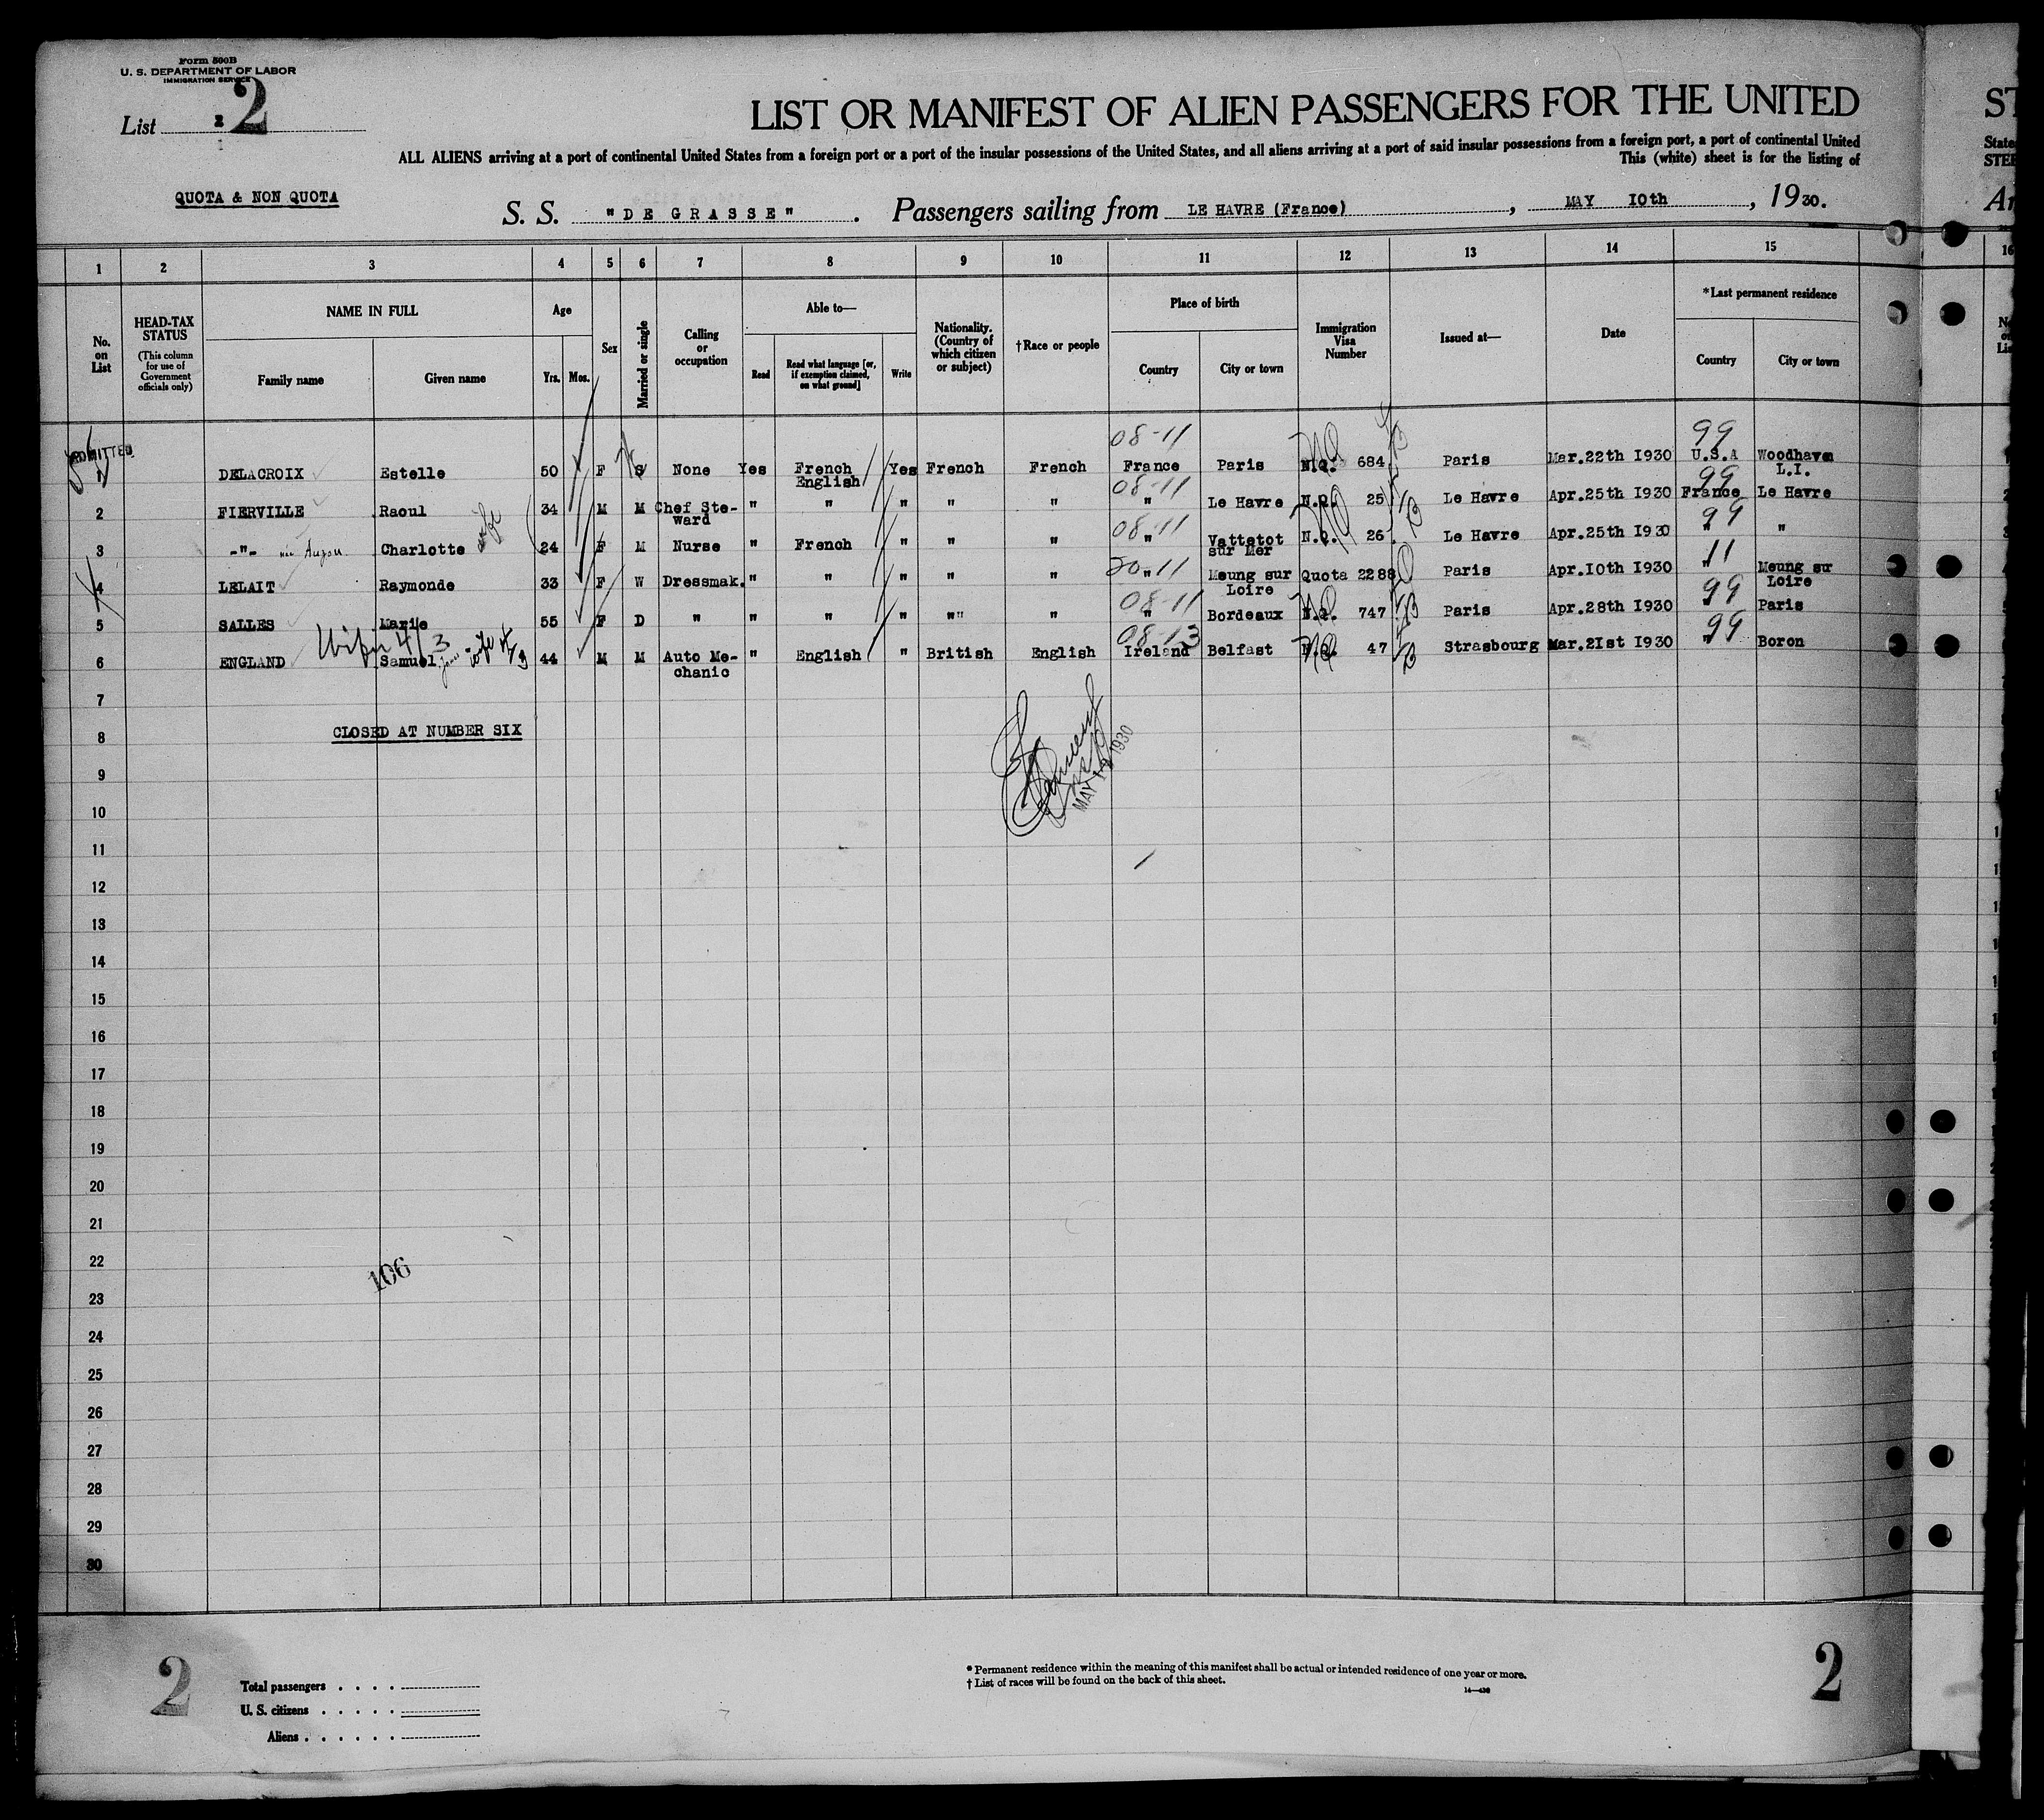 Form 500B
U. S. DEPARTMENT OF LABOR
IMMIGRATION SERVICE
List 2 2
LIST OR MANIFEST OF ALIEN PASSENGERS FOR THE UNITED
ALL ALIENS arriving at a port of continental United States from a foreign port or a port of the insular possessions of the United States, and all aliens arriving at a port of said insular possessions from a foreign port, a port of continental United
This (white) sheet is for the listing of
QUOTA & NON QUOTA
S. S. "DE GRASSE". Passengers sailing from LE HAVRE (France), MAY 10th, 1930.
1 2 3 4 5 6 7 8 9 10 11 12 13 14 15 16
No. on List
HEAD-TAX STATUS (This column for use of Government officials only)
NAME IN FULL
Family name Given name
Age
Yrs. Mos.
Sex
Married or single
Calling or occupation
Able to—
Read
Read what language [or, if exemption claimed, on what ground]
Write
Nationality. (Country of which citizen or subject)
†Race or people
Place of birth
Country City or town
Immigration Visa Number
Issued at—
Date
*Last permanent residence
Country City or town
ADMITTED
08-11 99
1 DELACROIX Estelle 50 F S None Yes French English Yes French French France Paris N.Q. 684 Paris Mar.22th 1930 U.S.A Woodhaven L.I.
08-11 99
2 FIERVILLE Raoul 34 M M Chef Ste-ward " " " " " " Le Havre N.Q. 25 Le Havre Apr.25th 1930 France Le Havre
wife 08-11 99
3 -"- née Charlotte 24 F M Nurse " French " " " " Vattetot sur Mer N.Q. 26. Le Havre Apr.25th 1930 " "
20-11 11
4 LELAIT Raymonde 33 F W Dressmak. " " " " " " Meung sur Loire Quota 2288 Paris Apr.10th 1930 " Meung sur Loire
08-11 99
5 SALLES Marie 55 F D " " " " " " " Bordeaux N.Q. 747 Paris Apr.28th 1930 " Paris
08-13 99
6 ENGLAND Samuel 44 M M Auto Me-chanic " English " British English Ireland Belfast N.Q. 47 Strasbourg Mar.21st 1930 " Boron
7
CLOSED AT NUMBER SIX
8
MAY 1930
9
10
11
12
13
14
15
16
17
18
19
20
21
22
106
23
24
25
26
27
28
29
30
2
Total passengers
U. S. citizens
Aliens
* Permanent residence within the meaning of this manifest shall be actual or intended residence of one year or more.
† List of races will be found on the back of this sheet.
2